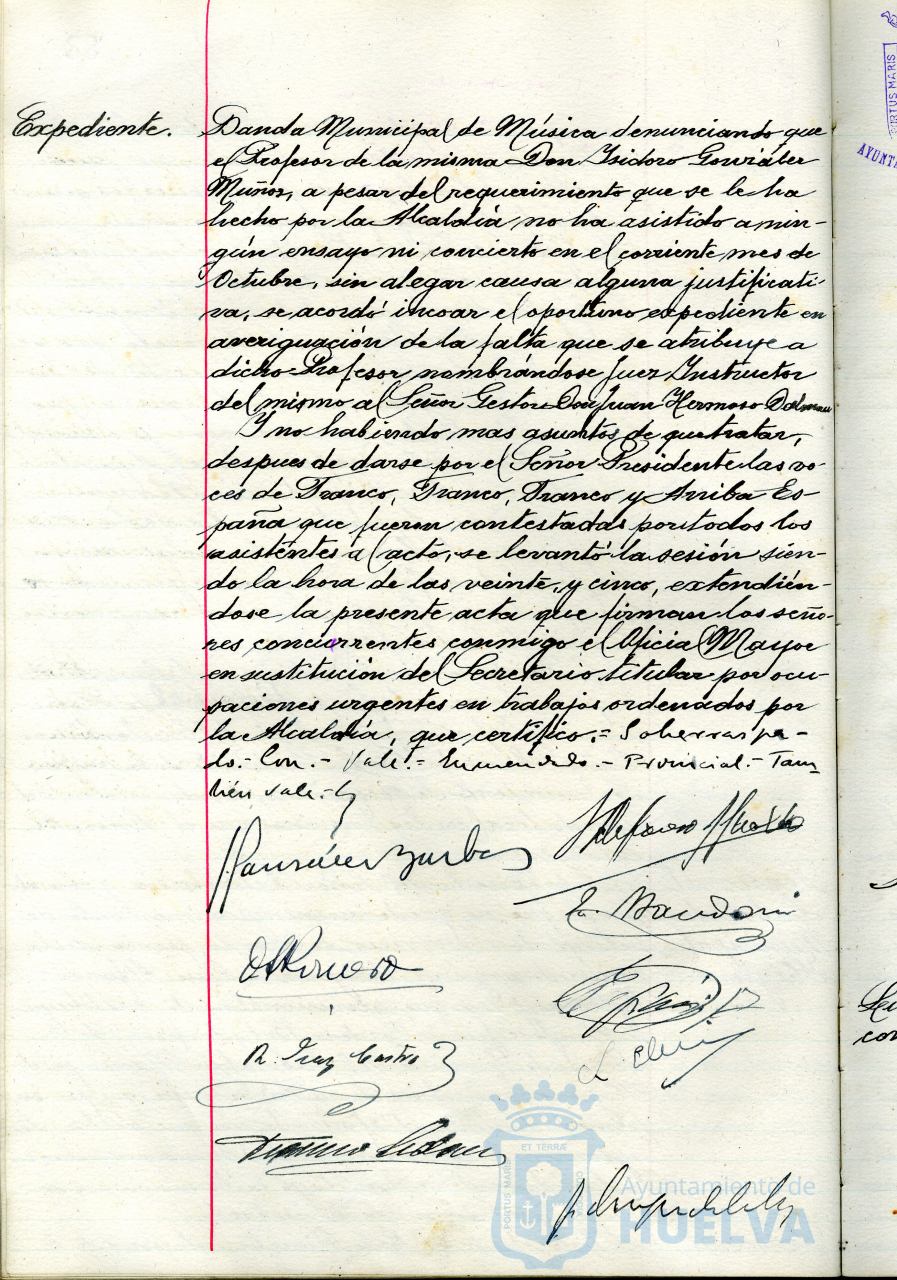 Expediente.
Banda Municipal de Música denunciando que
el Profesor de la misma Don Isidoro González
Muñoz, a pesar del requerimiento que se le ha
hecho por la Alcaldía no ha asistido a nin-
gún ensayo ni concierto en el corriente mes de
Octubre, sin alegar causa alguna justificati-
va, se acordó incoar el oportuno expediente en
averiguación de la falta que se atribuye a
dicho Profesor nombrándose Juez Instructor
del mismo al Señor Gestor Don Juan Hermoso Dalmau
Y no habiendo mas asuntos de que tratar,
despues de darse por el Señor Presidente las vo-
ces de Franco, Franco, Franco y Arriba Es-
paña que fueron contestadas por todos los
asistentes al acto, se levantó la sesión sien-
do la hora de las veinte, y cinco, extendién-
dose la presente acta que firman los seño-
res concurrentes conmigo el Oficial Mayor
en sustitución del Secretario titular por ocu-
paciones urgentes en trabajos ordenados por
la Alcaldía, que certifico.= Soberraspa-
do.- Con.- Vale.- Enmendado.- Provincial.- Tam-
bién vale.-
González Barba
R. Díaz Castro
PORTUS MARIS
ET TERRÆ
Ayuntamiento de
HUELVA
PORTUS MARIS
AYUNT